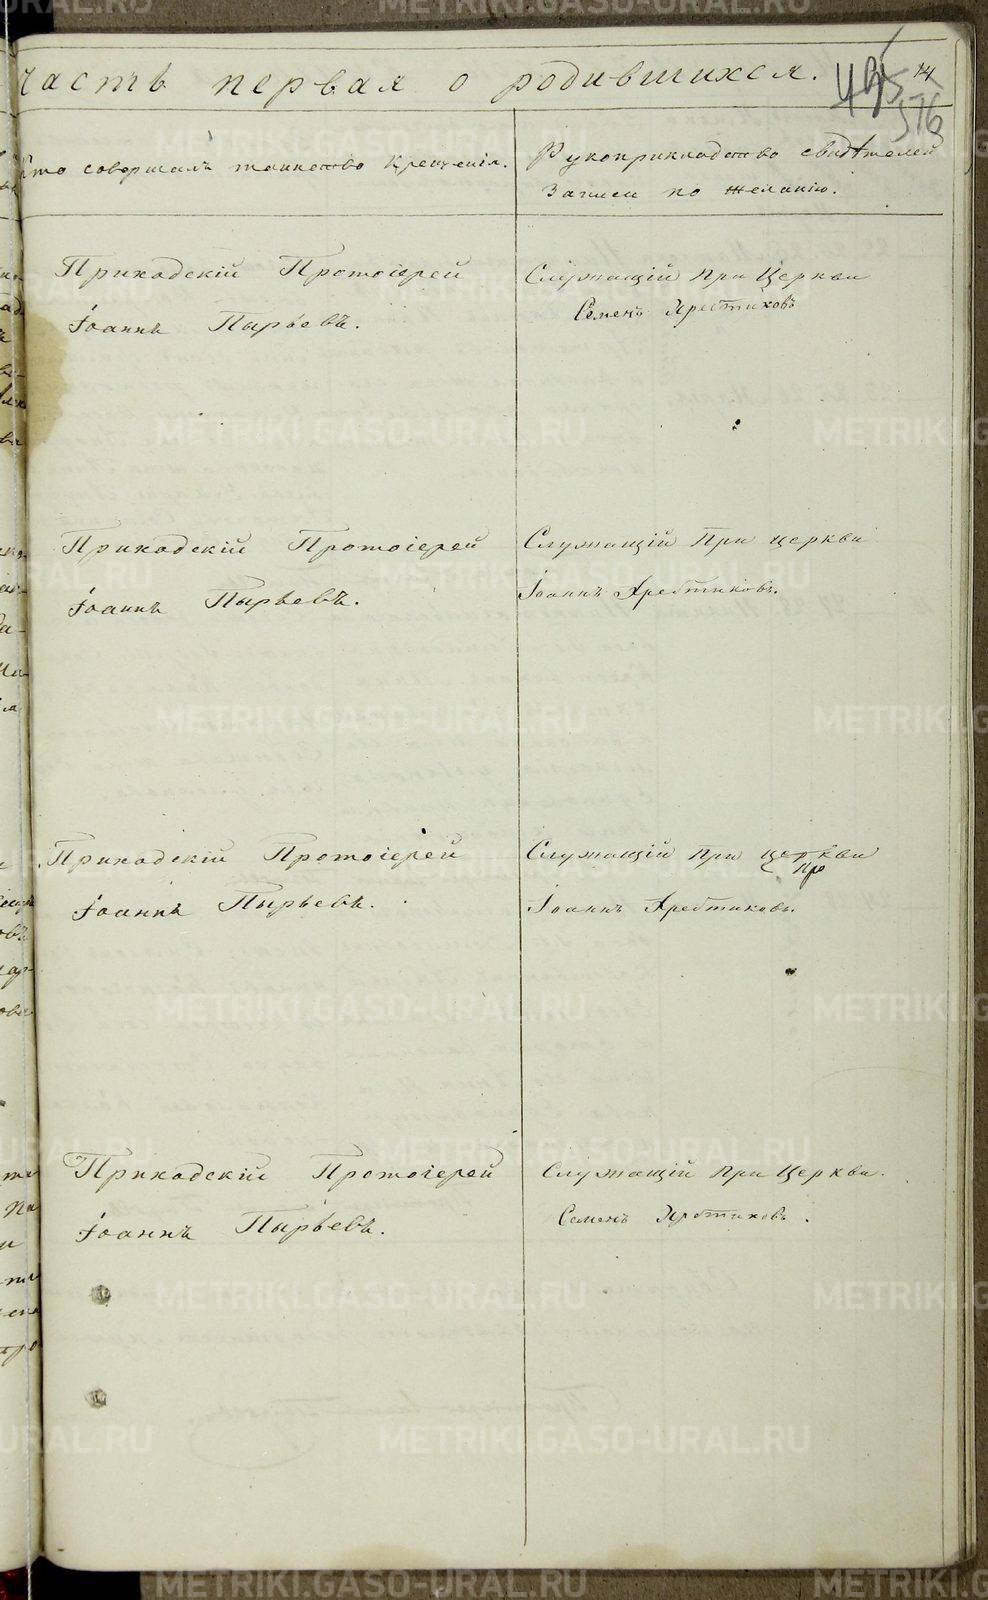 Часть первая о родившихся.
14
495
576
Кто совершалъ таинство крещенія.
Рукоприкладство свидѣтелей
записи по желанію.
Приходскій Протоіерей
Іоаннъ Пырьевъ.
Служащій при Церкви
Семенъ Хребтиковъ
Приходскій Протоіерей
Іоаннъ Пырьевъ.
Служащій при церкви
Іоаннъ Хребтиковъ.
Приходскій Протоіерей
Іоаннъ Пырьевъ.
Служащій при церкви
Іоаннъ Хребтиковъ.
Приходскій Протоіерей
Іоаннъ Пырьевъ.
Служащій при Церкви.
Семенъ Хребтиковъ.
METRIKI.GASO-URAL.RU